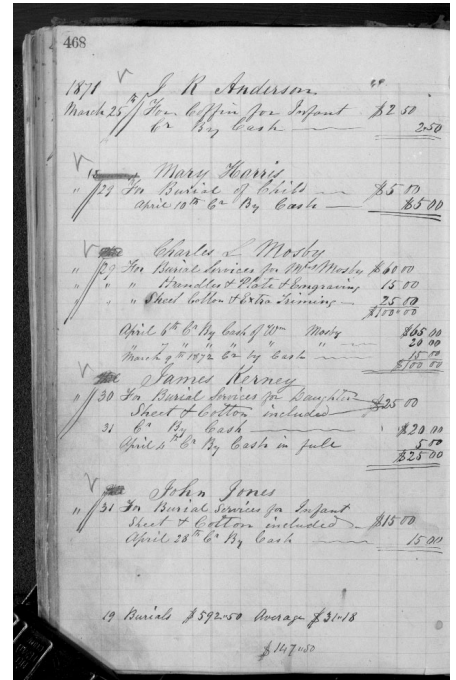 468
1871 J R Anderson
March 25th For Coffin for Infant $2 50
Cr By Cash 2.50
Mary Harris
" 29 For Burial of Child $5 00
April 10th Cr By Cash $5 00
Charles L Mosby
" 29 For Burial Services for Mrs Mosby $60 00
" " " Plate & Engraving 15 00
" " Sheet Cotton & Extra Triming 25 00
$100.00
April 6th Cr By Cash of Wm Mosby $65 00
" 7 " " " " " 20 00
March 9th 1872 Cr by Cash 15 00
$100 00
James Kerney
" 30 For Burial Services for Daughter
Sheet & Cotton included $25 00
31 Cr By Cash $20 00
April 4th Cr By Cash in full 5 00
$25 00
John Jones
" 31 For Burial Services for Infant
Sheet & Cotton included $15 00
April 28th Cr By Cash 15 00
19 Burials $592.50 Average $31.18
$147.50